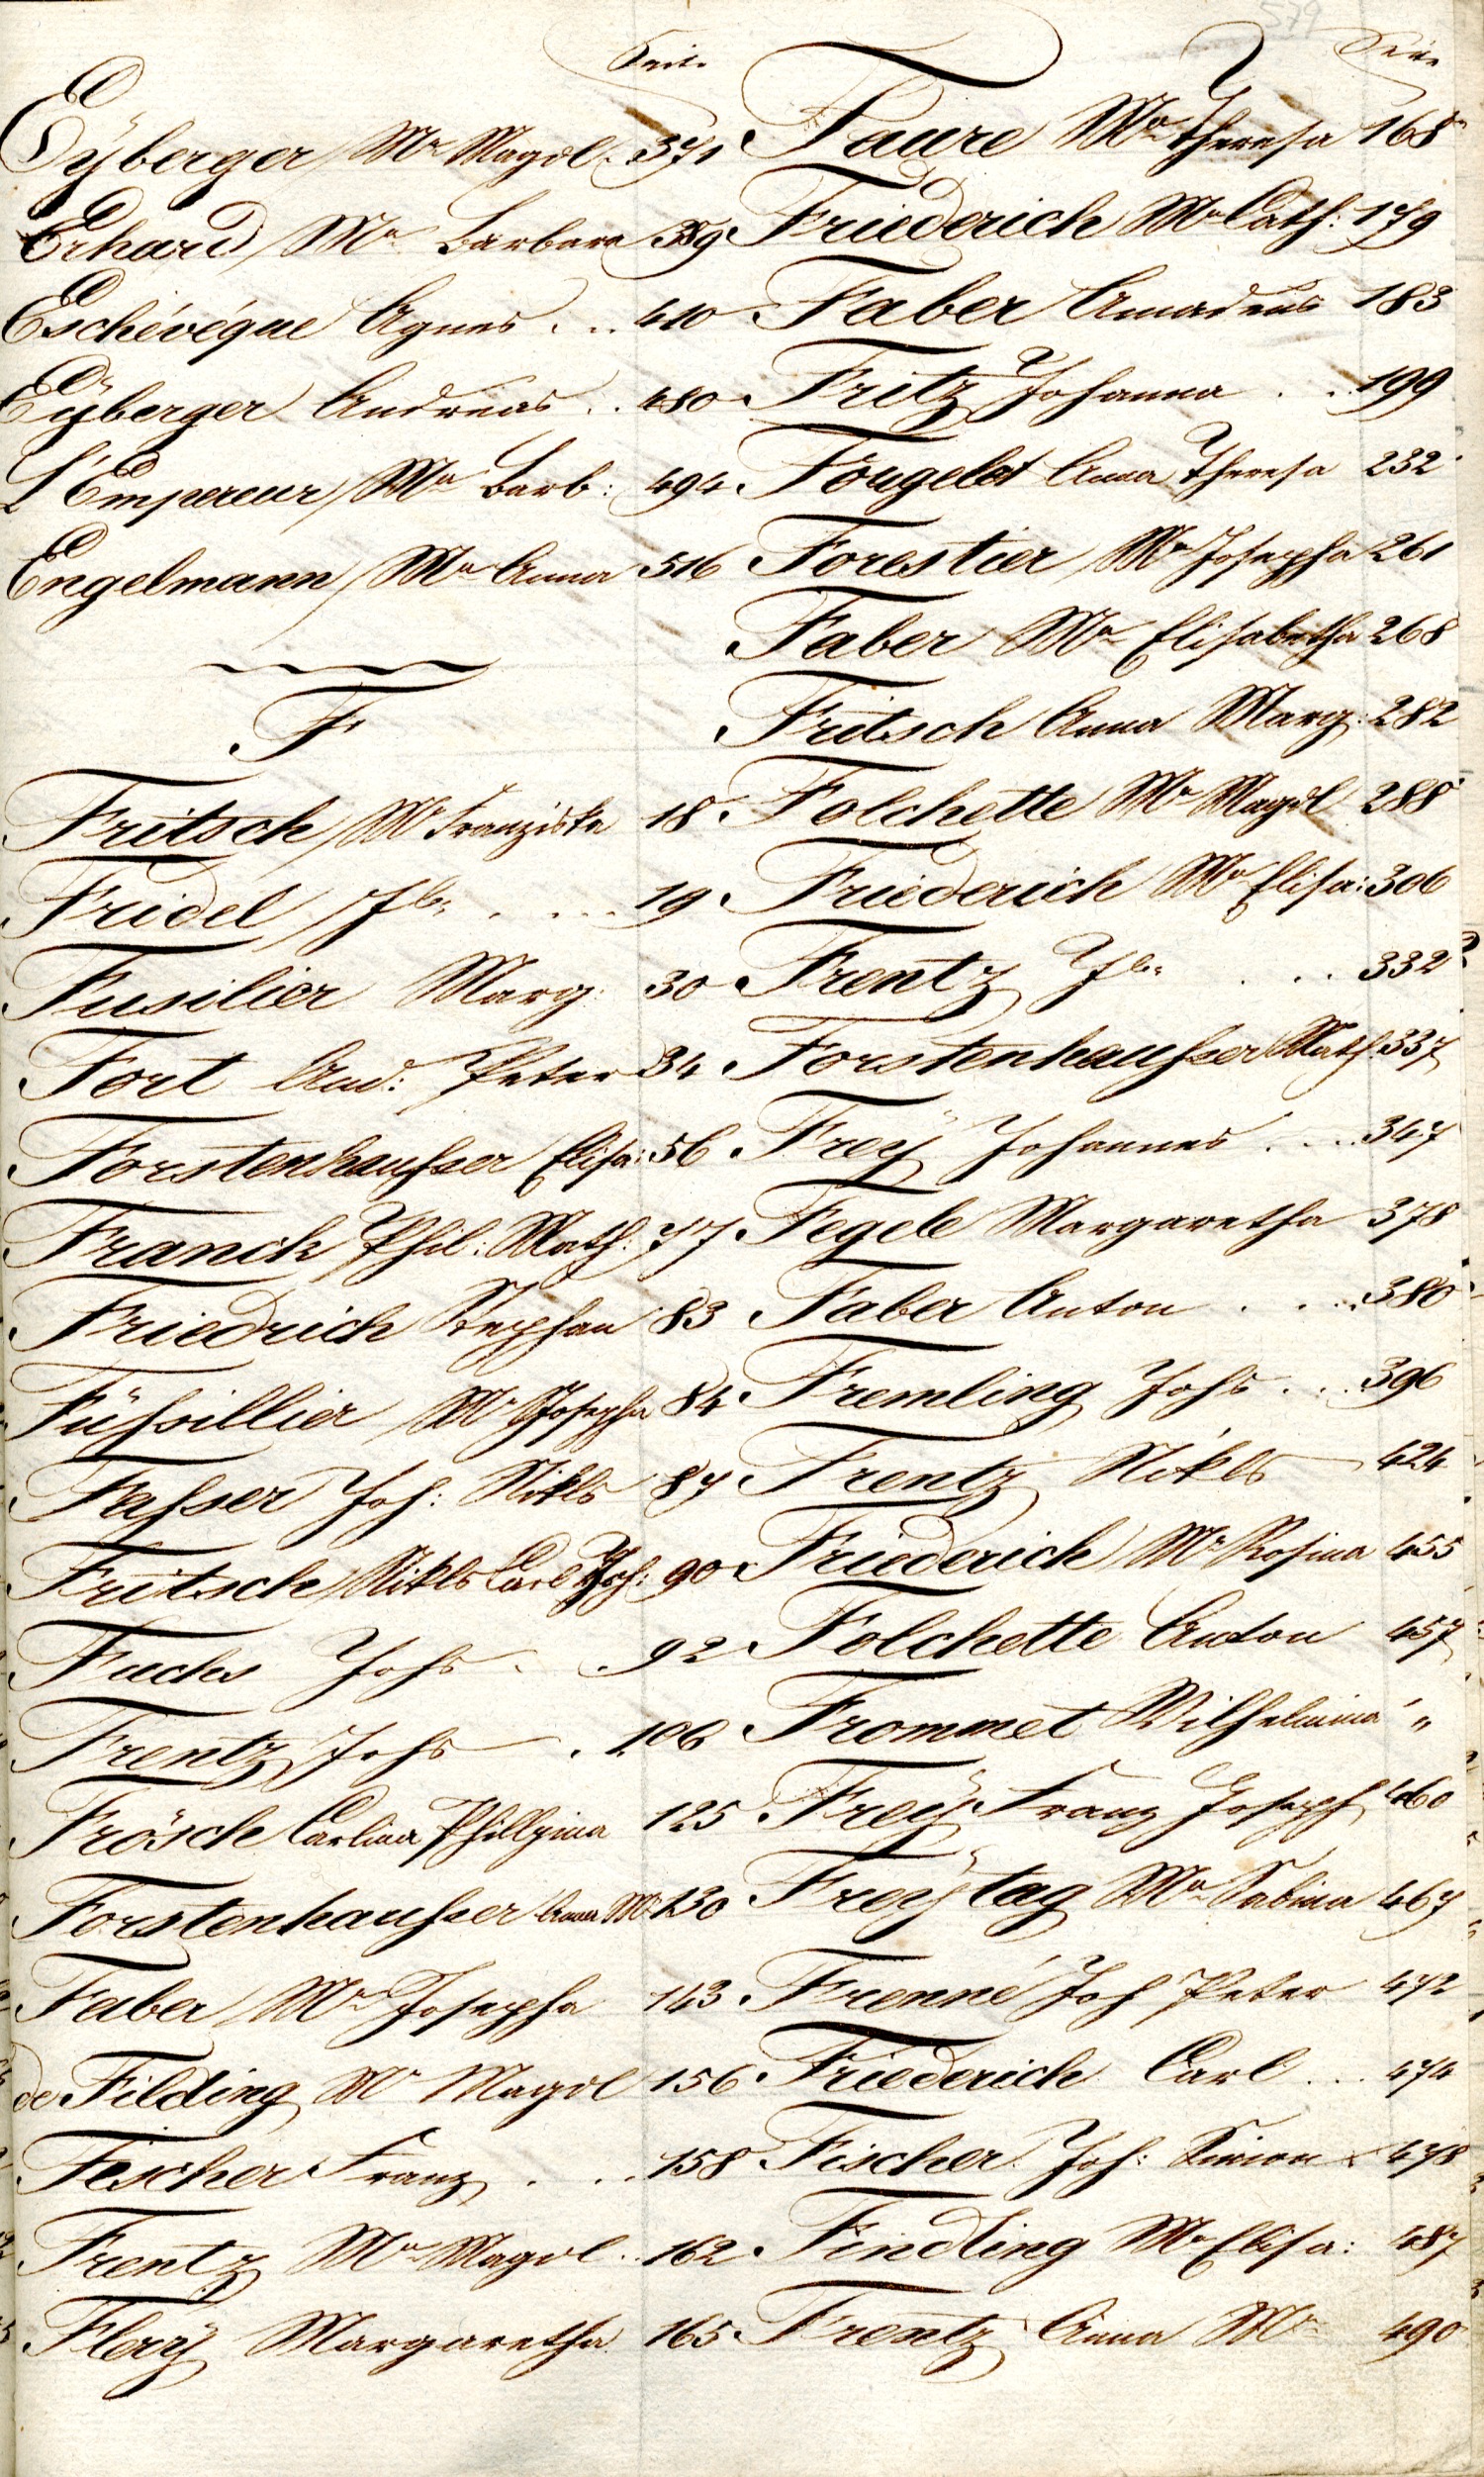 579
Seite
Eÿberger Mª Magdl. 371
Erhard Mª Barbara 389
Eschévéque Agnes . . . 410
Eÿberger Andreas . . 480
L'Empereur Mª Barb: 494
Engelmann Mª Anna 516
F
Fritsch Mª Franziska 18
Fridel . . . 19
Fusilier Marg: 30
Fort And: Peter 34
Forstenhausser Elisa: 56
Franck Phil: Math: 77
Friedrich Stephan 83
Füssillier Mª Josepha 84
Fasser Joh: Nikls 87
Fritsch Nikls Carl Joh: 90
Fuchs Johs . . 92
Frentz Johs . 106
Frösch Carlina Phillpina 125
Forstenhausser Anna Mª 130
Faber Mª Josepha 143
de Filding Mª Magdl 156
Fischer Franz . . . 158
Frentz Mª Magdl . . 162
Flerÿ Margaretha 165
Seite
Faure Mª Theresa 168
Friederich Mª Cath: 179
Faber Amadeus 183
Fritz Johanna . . . 199
Fougelot Anna Theresa 232
Forestier Mª Josepha 261
Faber Mª Elisabetha 268
Fritsch Anna Marg: 282
Folchette Mª Magdl 288
Friederich Mª Elisa: 306
Frentz . . . 332
Forstenhausser Math: 337
Freÿ Johannes . . . 347
Fegele Margaretha 378
Faber Anton . . . 380
Fremling Johs . . . 396
Frentz Nikls 424
Friederich Mª Rosina 455
Folchette Anton 457
Frommet Wilhelmina "
Freÿ Franz Joseph 460
Freÿtag Mª Sabina 467
Frenné Joh Peter 472
Friederich Carl . . . 474
Fischer Joh: Simon 478
Findling Mª Elisa: 487
Frentz Anna Mª 490